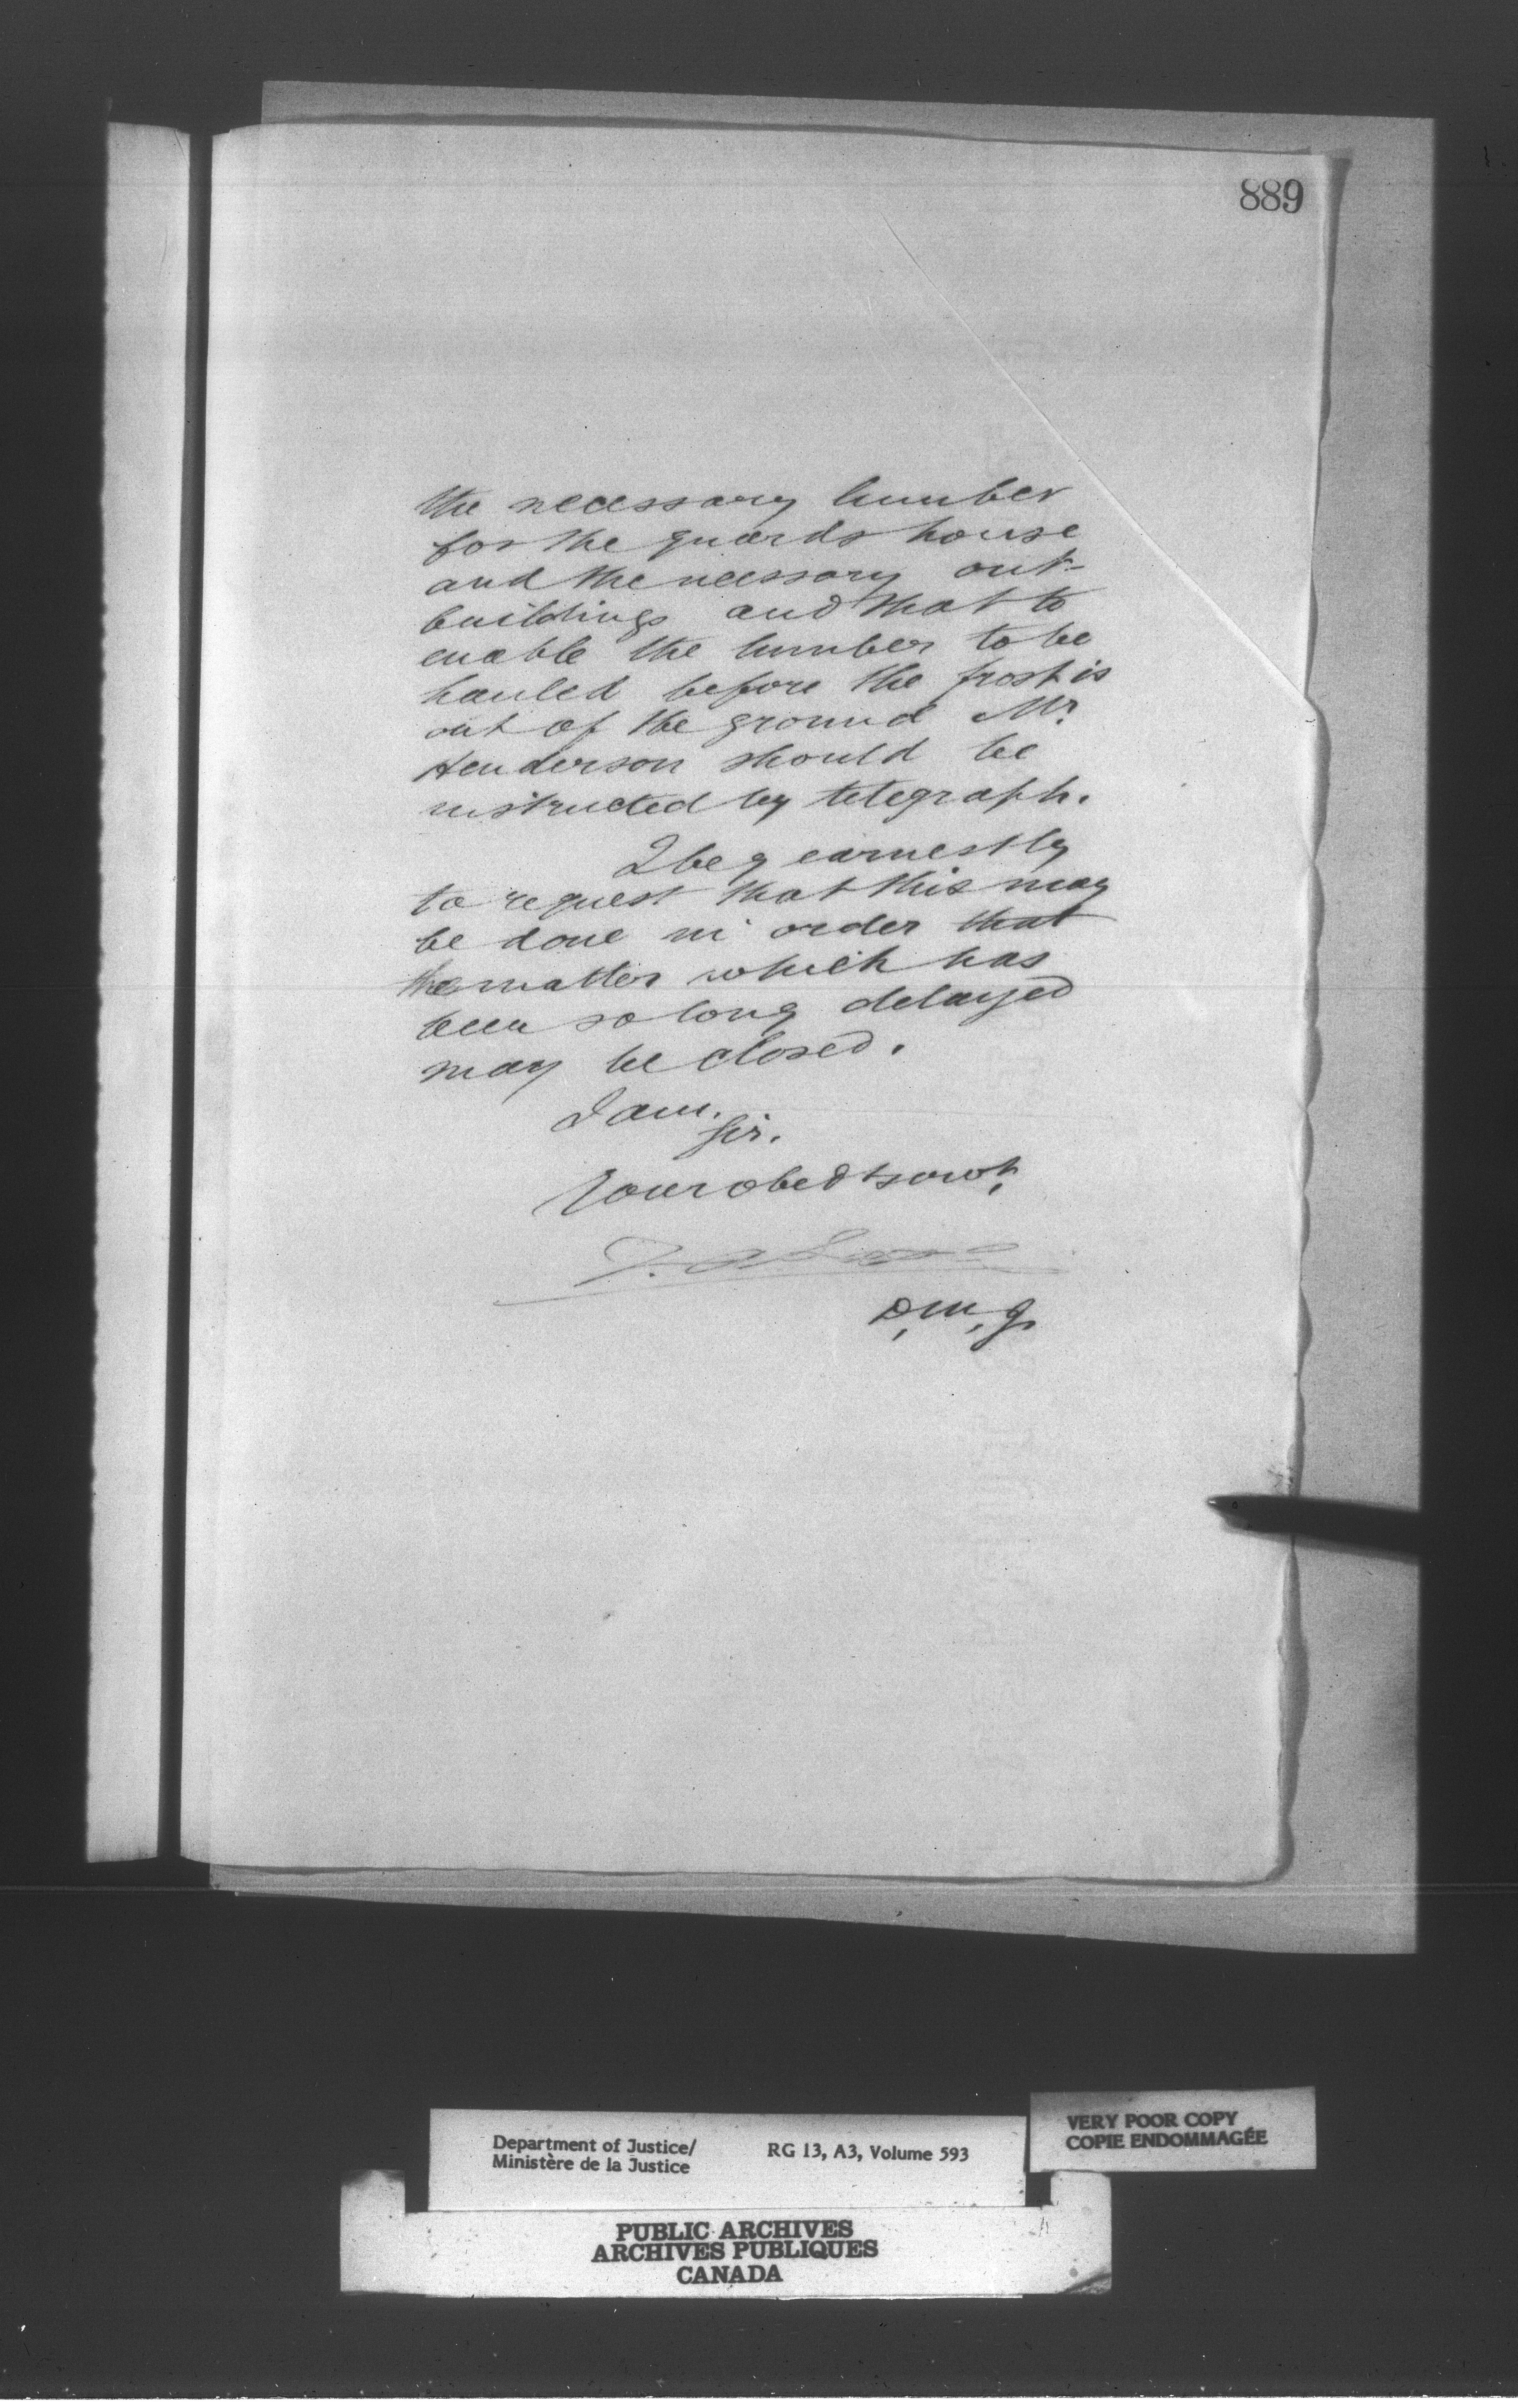 889
the necessary lumber
for the guards house
and the necessary out-
buildings and that to
enable the lumber to be
hauled before the frost is
out of the ground Mr.
Henderson should be
instructed by telegraph.
I beg earnestly
to request that this may
be done in order that
the matter which has
been so long delayed
may be closed.
I am.
Sir.
Your obedt servt.
D.M.J.
Department of Justice/
Ministère de la Justice
RG 13, A3, Volume 593
VERY POOR COPY
COPIE ENDOMMAGÉE
PUBLIC ARCHIVES
ARCHIVES PUBLIQUES
CANADA